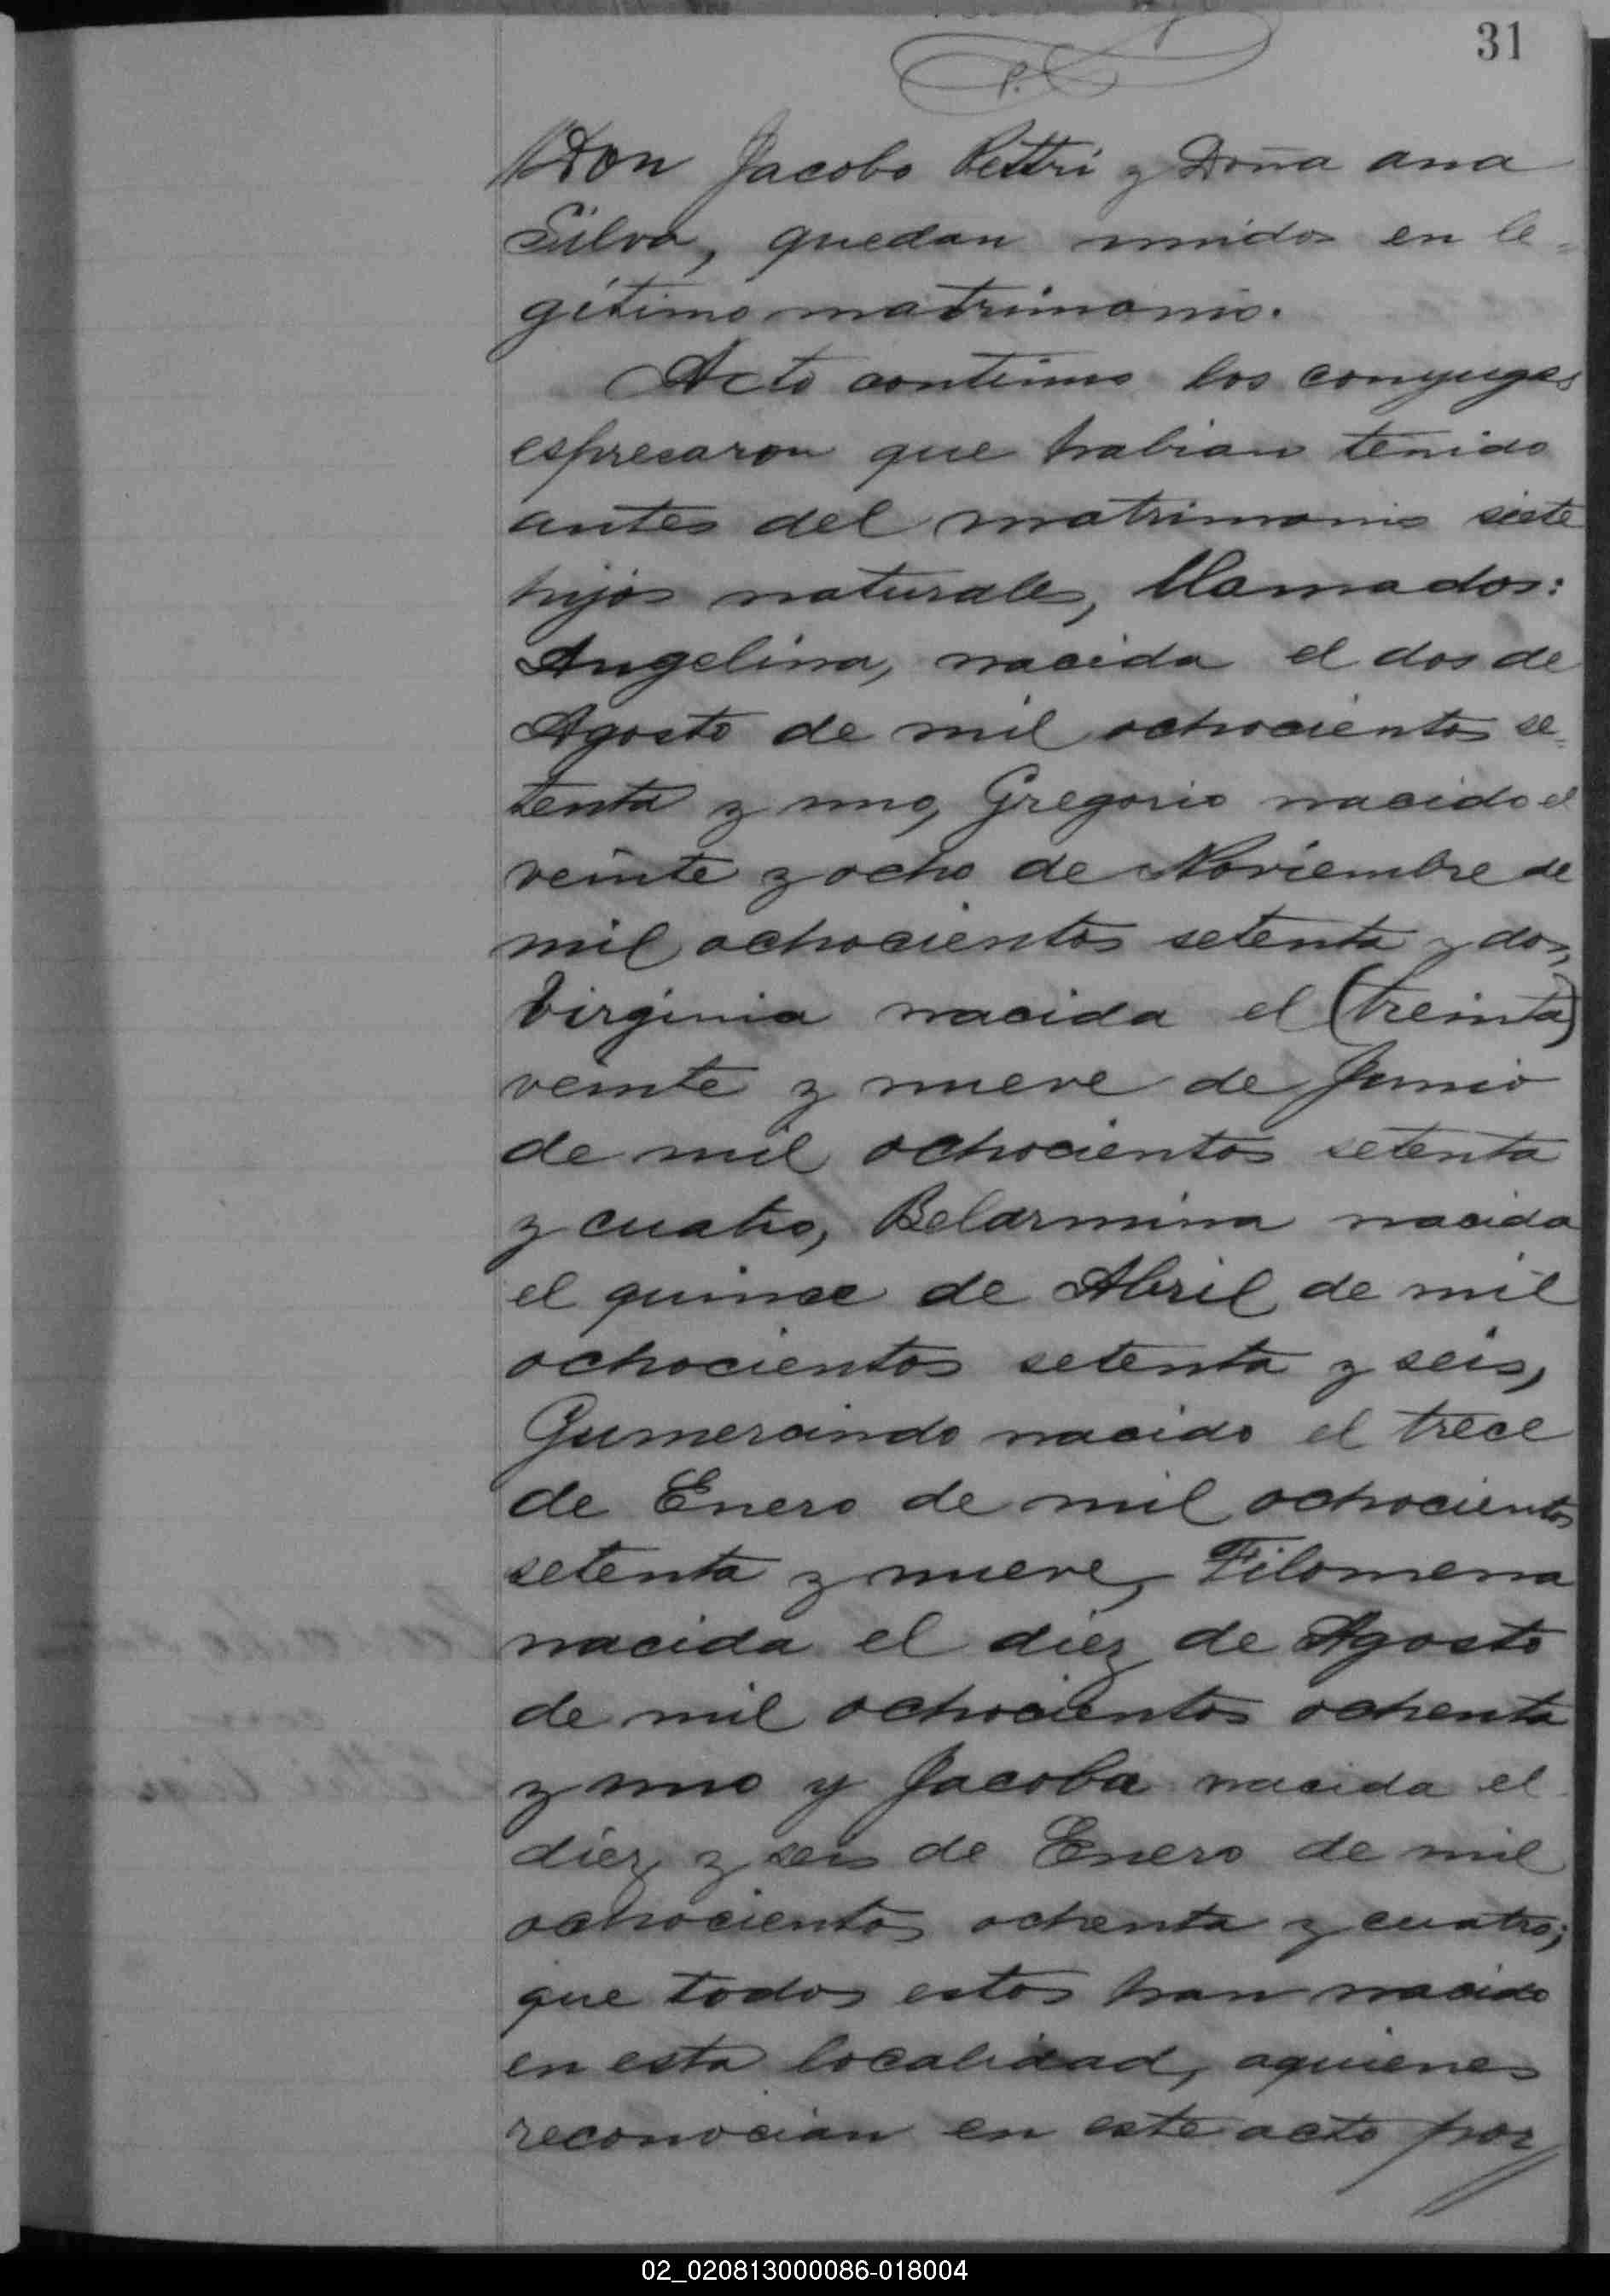 31
Don Jacobo Pettri y Doña ana
Silva, quedan unidos en le=
gítimo matrimonio.
Acto continuo los conyuges
espresaron que habian tenido
antes del matrimonio siete
hijos naturales, llamados:
Angelina, nacida el dos de
Agosto de mil ochocientos se=
tenta y uno, Gregorio nacido el
veinte y ocho de Noviembre de
mil ochocientos setenta y dos,
Virginia nacida el (treinta)
veinte y nueve de Junio
de mil ochocientos setenta
y cuatro, Belarmina nacida
el quince de Abril de mil
ochocientos setenta y seis,
Gumercindo nacido el trece
de Enero de mil ochocientos
setenta y nueve, Filomena
nacida el diez de Agosto
de mil ochocientos ochenta
y uno y Jacoba nacida el
diez y seis de Enero de mil
ochocientos ochenta y cuatro;
que todos estos han nacido
en esta localidad, aquienes
reconocian en este acto por
02_020813000086-018004